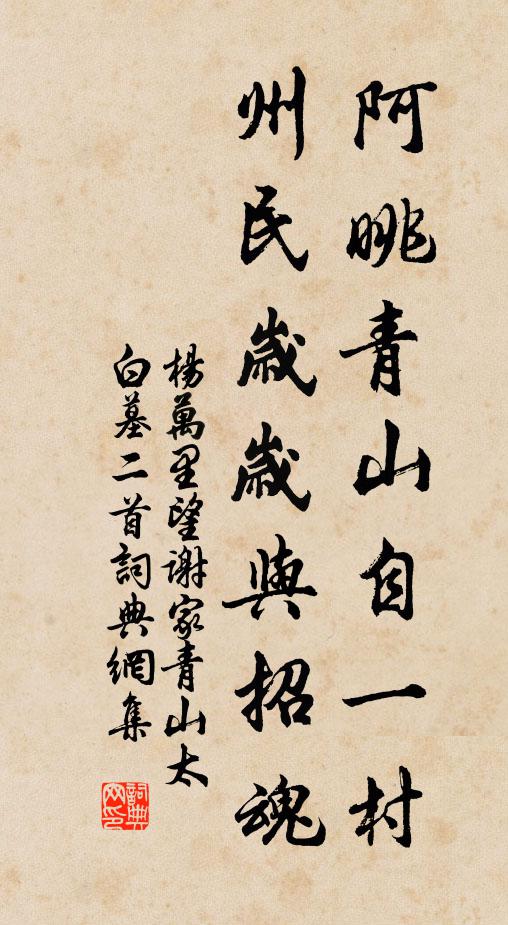 阿眺青山自一村
州民歲歲與招魂
楊萬里望謝家青山太
白墓二首詞典網集
詞典
网印